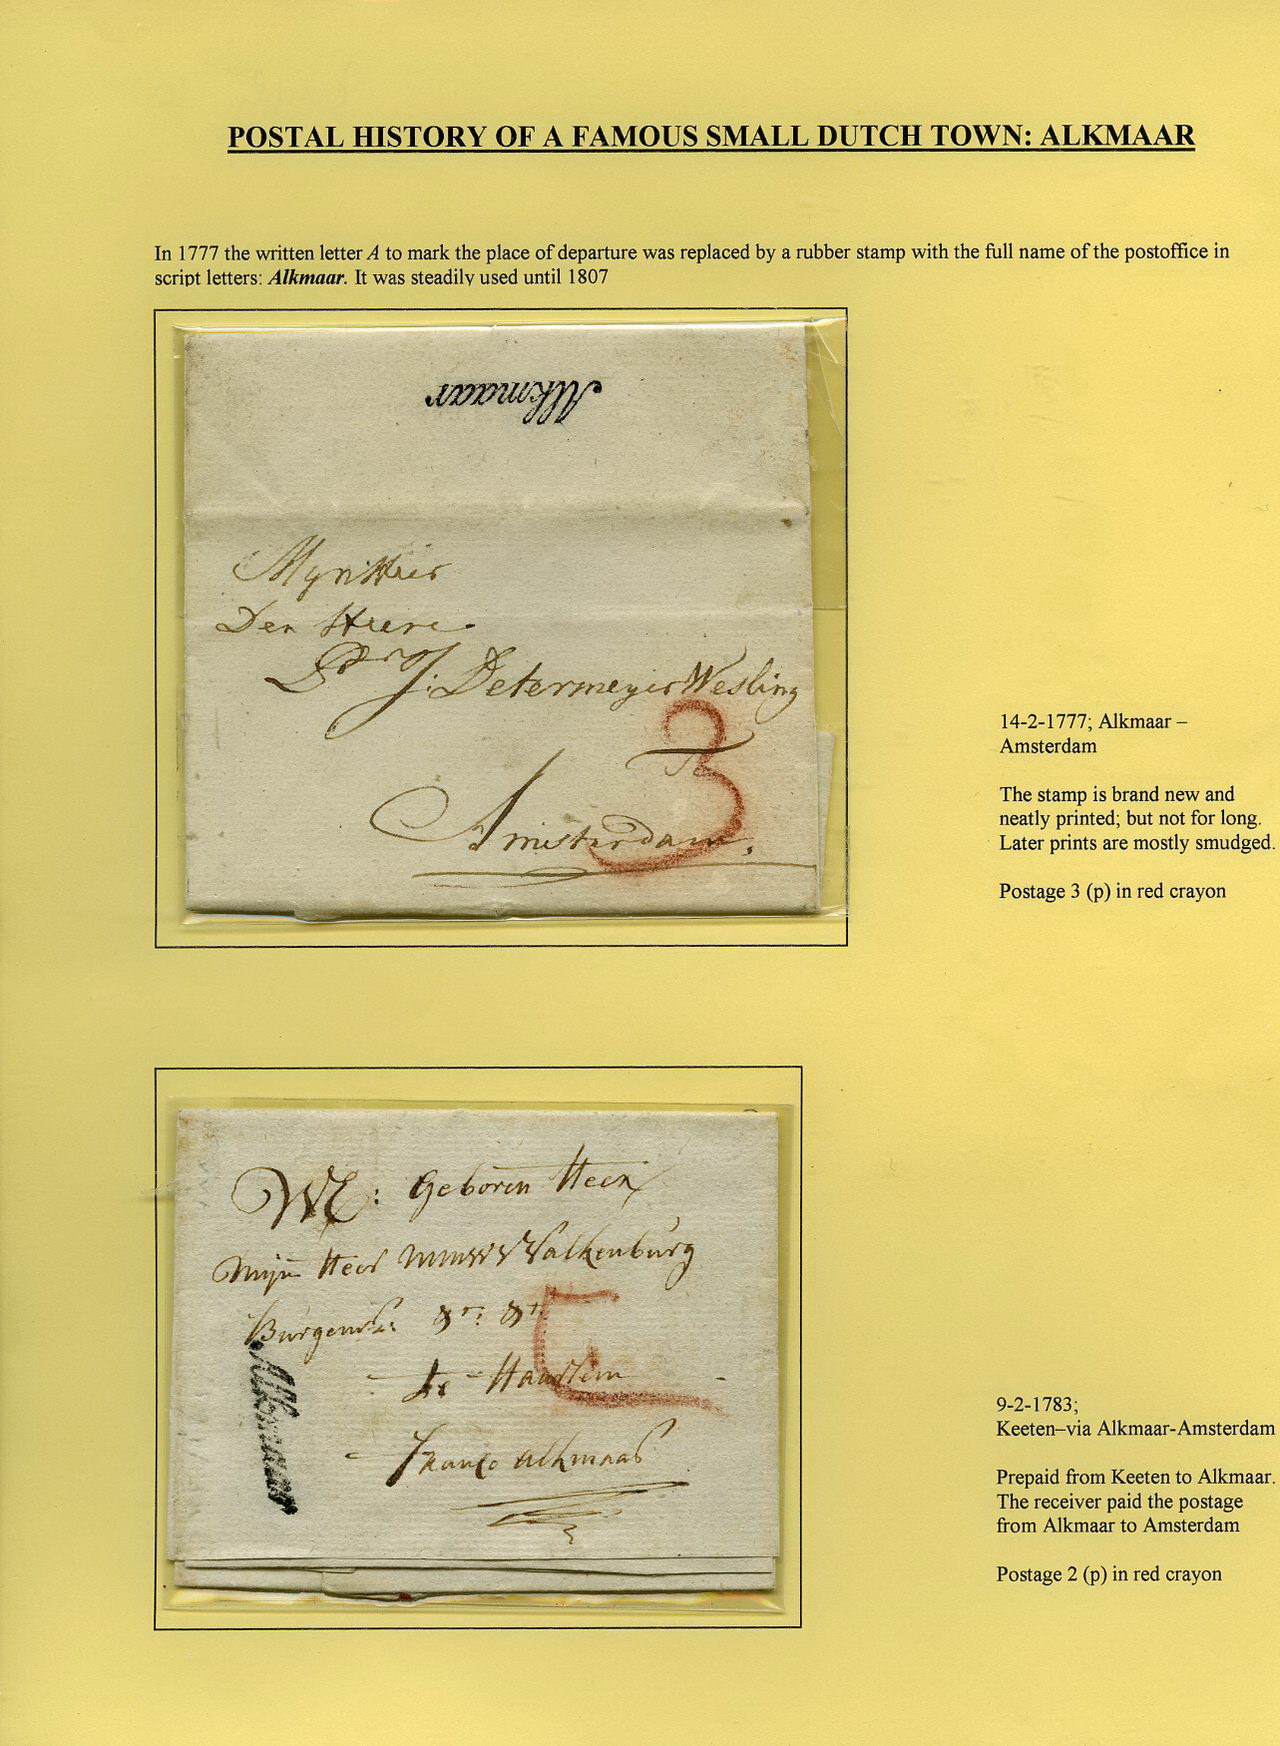 POSTAL HISTORY OF A FAMOUS SMALL DUTCH TOWN: ALKMAAR
In 1777 the written letter A to mark the place of departure was replaced by a rubber stamp with the full name of the postoffice in
script letters: Alkmaar. It was steadily used until 1807
Alkmaar
Mÿn Heer
Den Heere
J: Determeyer Wesling
3
Te
Amsterdam.
14-2-1777; Alkmaar –
Amsterdam
The stamp is brand new and
neatly printed; but not for long.
Later prints are mostly smudged.
Postage 3 (p) in red crayon
WE: Geboren Heer
Mijn Heer Valkenburg
Te Haarlem
franco alkmaar
Alkmaar
9-2-1783;
Keeten–via Alkmaar-Amsterdam
Prepaid from Keeten to Alkmaar.
The receiver paid the postage
from Alkmaar to Amsterdam
Postage 2 (p) in red crayon